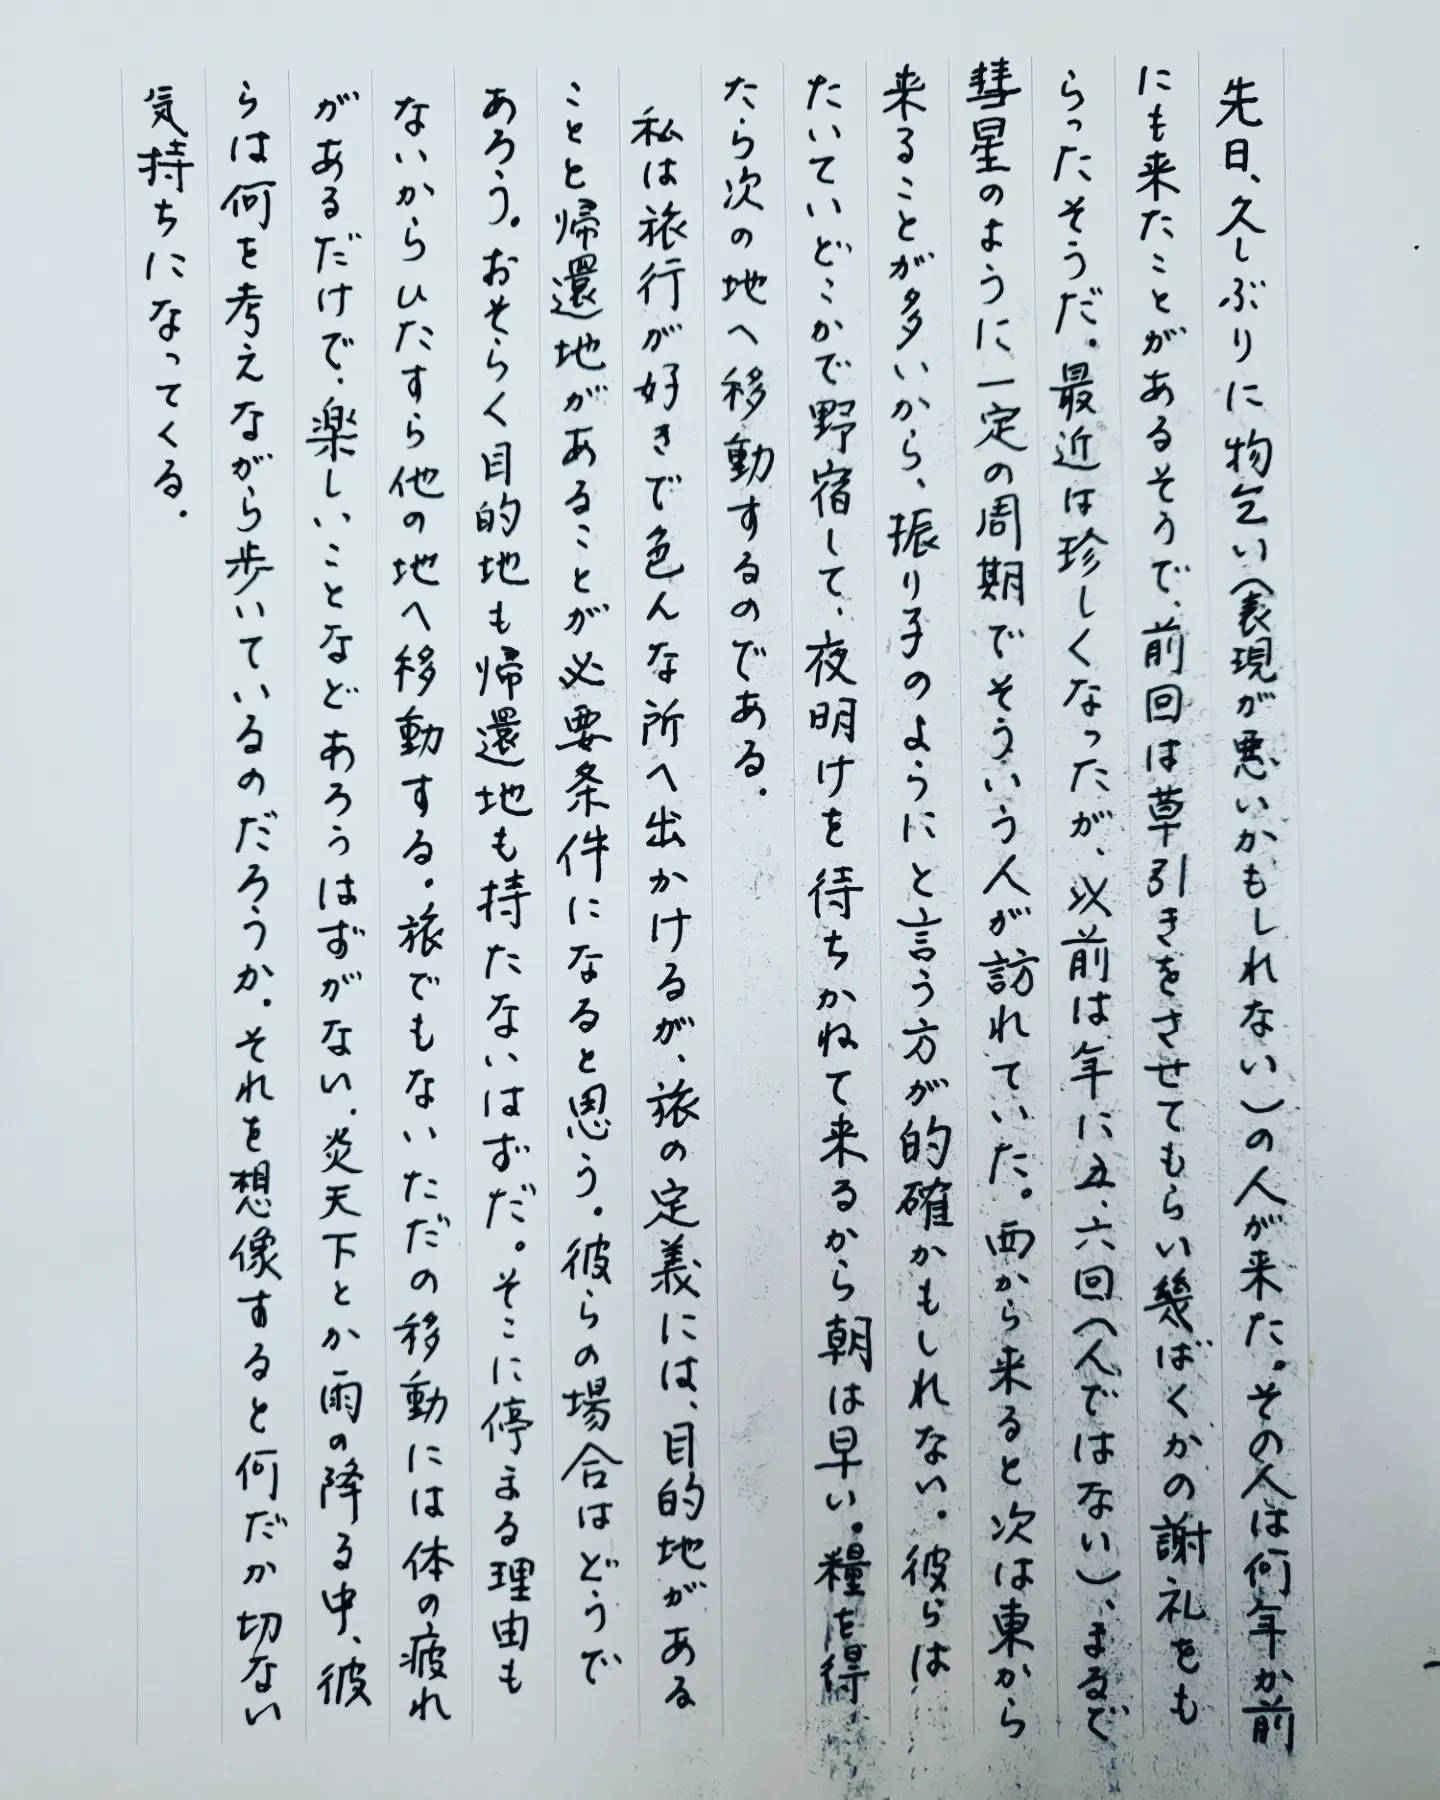 先日、久しぶりに物乞い(表現が悪いかもしれない)の人が来た。その人は何年か前
にも来たことがあるそうで、前回は草引きをさせてもらい幾ばくかの謝礼をも
らったそうだ。最近は珍しくなったが、以前は年に五、六回(人ではない)、まるで
彗星のように一定の周期でそういう人が訪れていた。西から来ると次は東から
来ることが多いから、振り子のようにと言う方が的確かもしれない。彼らは
たいていどこかで野宿して、夜明けを待ちかねて来るから朝は早い。糧を得
たら次の地へ移動するのである。
私は旅行が好きで色んな所へ出かけるが、旅の定義には、目的地がある
ことと帰還地があることが必要条件になると思う。彼らの場合はどうで
あろう。おそらく目的地も帰還地も持たないはずだ。そこに停まる理由も
ないからひたすら他の地へ移動する。旅でもないただの移動には体の疲れ
があるだけで、楽しいことなどあろうはずがない。炎天下とか雨の降る中、彼
らは何を考えながら歩いているのだろうか。それを想像すると何だか切ない
気持ちになってくる。